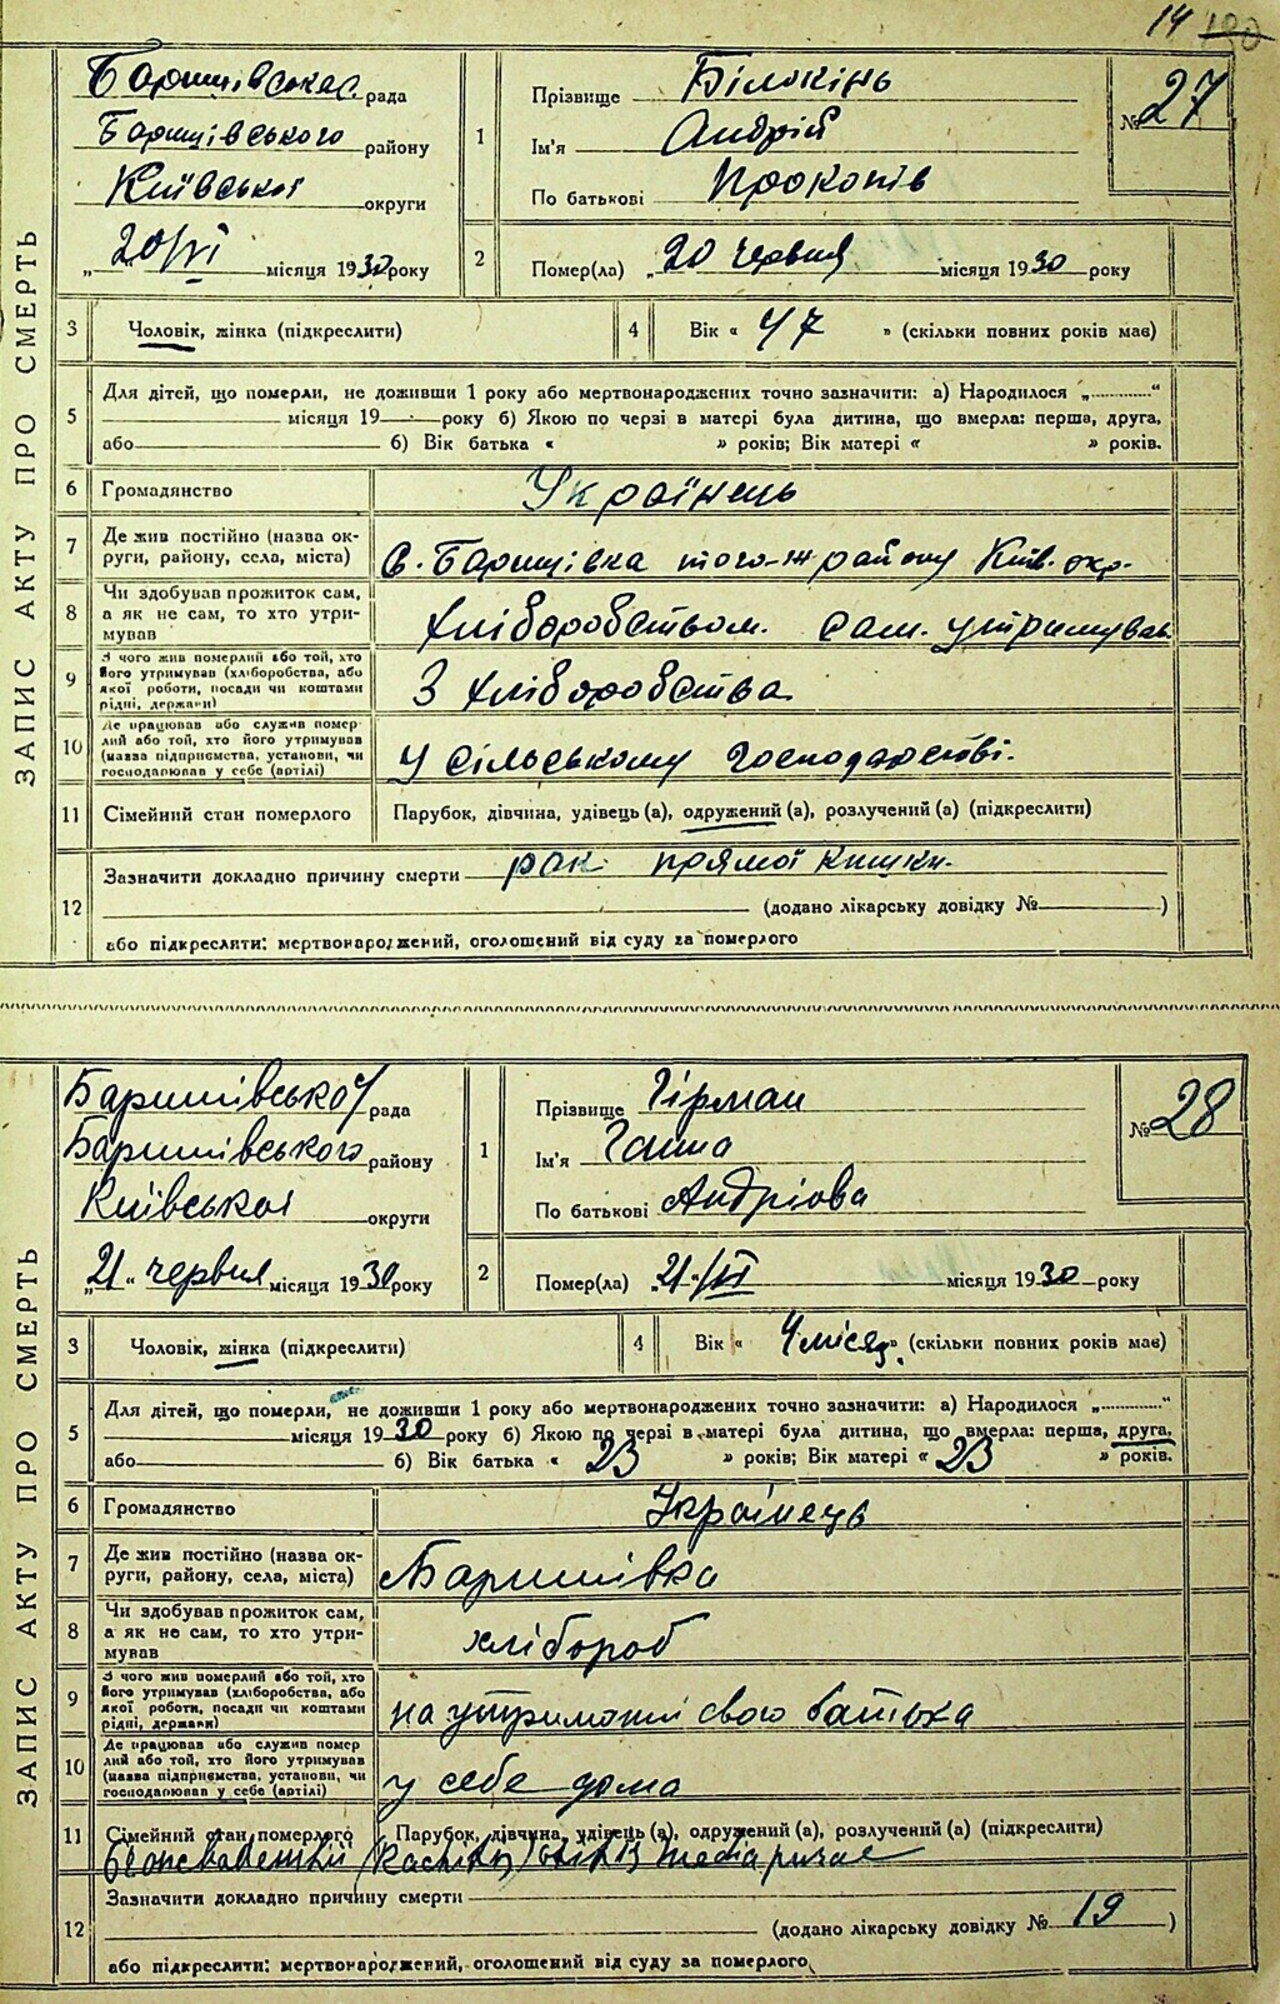 14
ЗАПИС АКТУ ПРО СМЕРТЬ
Баришівська рада
Баришівського району
Київської округи
„20/VI місяця 1930 року
1
Прізвище Білокінь
Ім'я Андрій
По батькові Прокопів
№ 27
2
Помер(ла) „20 червня місяця 1930 року
3 Чоловік, жінка (підкреслити)
4 Вік « 47 » (скільки повних років має)
5
Для дітей, що померли, не доживши 1 року або мертвонароджених точно зазначити: а) Народилося „............“
місяця 19 року б) Якою по черзі в матері була дитина, що вмерла: перша, друга,
або б) Вік батька « » років; Вік матері « » років.
6 Громадянство Українець
7
Де жив постійно (назва ок-
руги, району, села, міста) С. Баришівка того-ж району Київ. окр.
8
Чи здобував прожиток сам,
а як не сам, то хто утри-
мував Хліборобством. сам. утримував
9
З чого жив померлий або той, хто
його утримував (хліборобства, або
якої роботи, посади чи коштами
рідні, держави) З хліборобства
10
Де працював або служив помер-
лий або той, хто його утримував
(назва підприємства, установи, чи
господарював у себе (артілі) У сільському господарстві.
11 Сімейний стан померлого Парубок, дівчина, удівець (а), одружений (а), розлучений (а) (підкреслити)
12
Зазначити докладно причину смерти рак прямої кишки.
(додано лікарську довідку № )
або підкресляти: мертвонароджений, оголошений від суду за померлого
ЗАПИС АКТУ ПРО СМЕРТЬ
Баришівської рада
Баришівського району
Київської округи
„21“ червня місяця 1930 року
1
Прізвище Гірман
Ім'я Ганна
По батькові Андріова
№ 28
2
Помер(ла) „21“/VI місяця 1930 року
3 Чоловік, жінка (підкреслити)
4 Вік « 4 місяц. » (скільки повних років має)
5
Для дітей, що померли, не доживши 1 року або мертвонароджених точно зазначити: а) Народилося „............“
місяця 1930 року б) Якою по черзі в матері була дитина, що вмерла: перша, друга,
або б) Вік батька « 23 » років; Вік матері « 23 » років.
6 Громадянство Українець
7
Де жив постійно (назва ок-
руги, району, села, міста) Баришівка
8
Чи здобував прожиток сам,
а як не сам, то хто утри-
мував хлібороб
9
З чого жив померлий або той, хто
його утримував (хліборобства, або
якої роботи, посади чи коштами
рідні, держави) на утриманні свого батька
10
Де працював або служив помер
лий або той, хто його утримував
(назва підприємства, установи, чи
господарював у себе (артілі) у себе дома
11 Сімейний стан померлого Парубок, дівчина, удівець (а), одружений (а), розлучений (а) (підкреслити)
media
12
Зазначити докладно причину смерти
(додано лікарську довідку № 19 )
або підкреслити: мертвонароджений, оголошений від суду за померлого